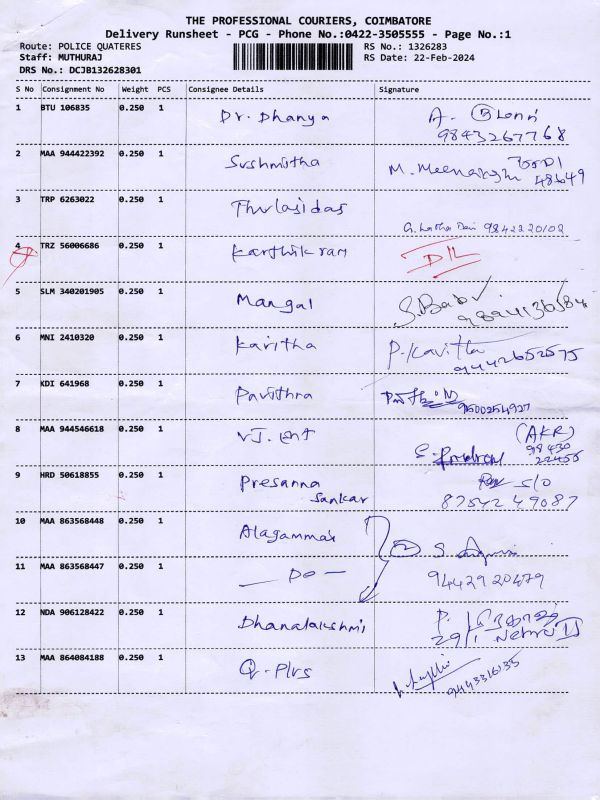 THE PROFESSIONAL COURIERS, COIMBATORE
Delivery Runsheet - PCG - Phone No.:0422-3505555 - Page No.:1
Route: POLICE QUATERES RS No.: 1326283
Staff: MUTHURAJ RS Date: 22-Feb-2024
DRS No.: DCJB132628301
S No Consignment No Weight PCS Consignee Details Signature
1 BTU 106835 0.250 1 Dr. Dhanya A.
9843267768
2 MAA 944422392 0.250 1 Sushmitha M. Meenakshi 48649
3 TRP 6263022 0.250 1 Thulasidas
G. Latha Devi 9842220102
4 TRZ 56006686 0.250 1 Karthik ram D/L
5 SLM 340201905 0.250 1 Mangal S. Babu
9894136584
6 MNI 2410320 0.250 1 Kavitha P. Kavitha
9442652575
7 KDI 641968 0.250 1 Pavithra
9500254927
8 MAA 944546618 0.250 1 VJ. (AKR)
98430
22456
9 HRD 50618855 0.250 1 Presanna S/O
Sankar 8754249087
10 MAA 863568448 0.250 1 Alagammai 2 S
11 MAA 863568447 0.250 1 — Do — 9442920479
12 NDA 906128422 0.250 1 Dhanalakshmi P.
29/1 Nehru II
13 MAA 864084188 0.250 1 Q-Plus
9443316135